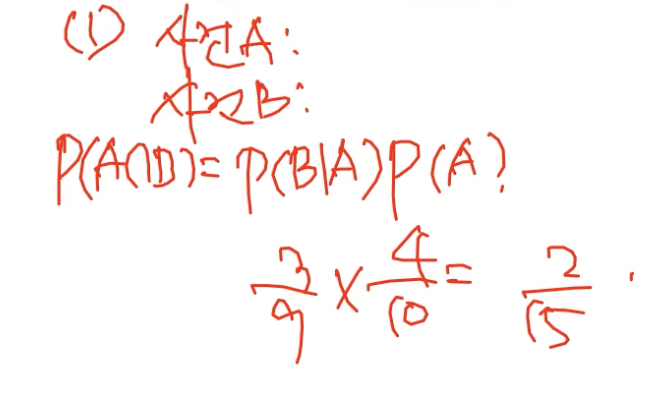 (1) 사건A:
사건B:
P(A∩B)= P(B|A)P(A)
3/9 × 4/10 = 2/15 .